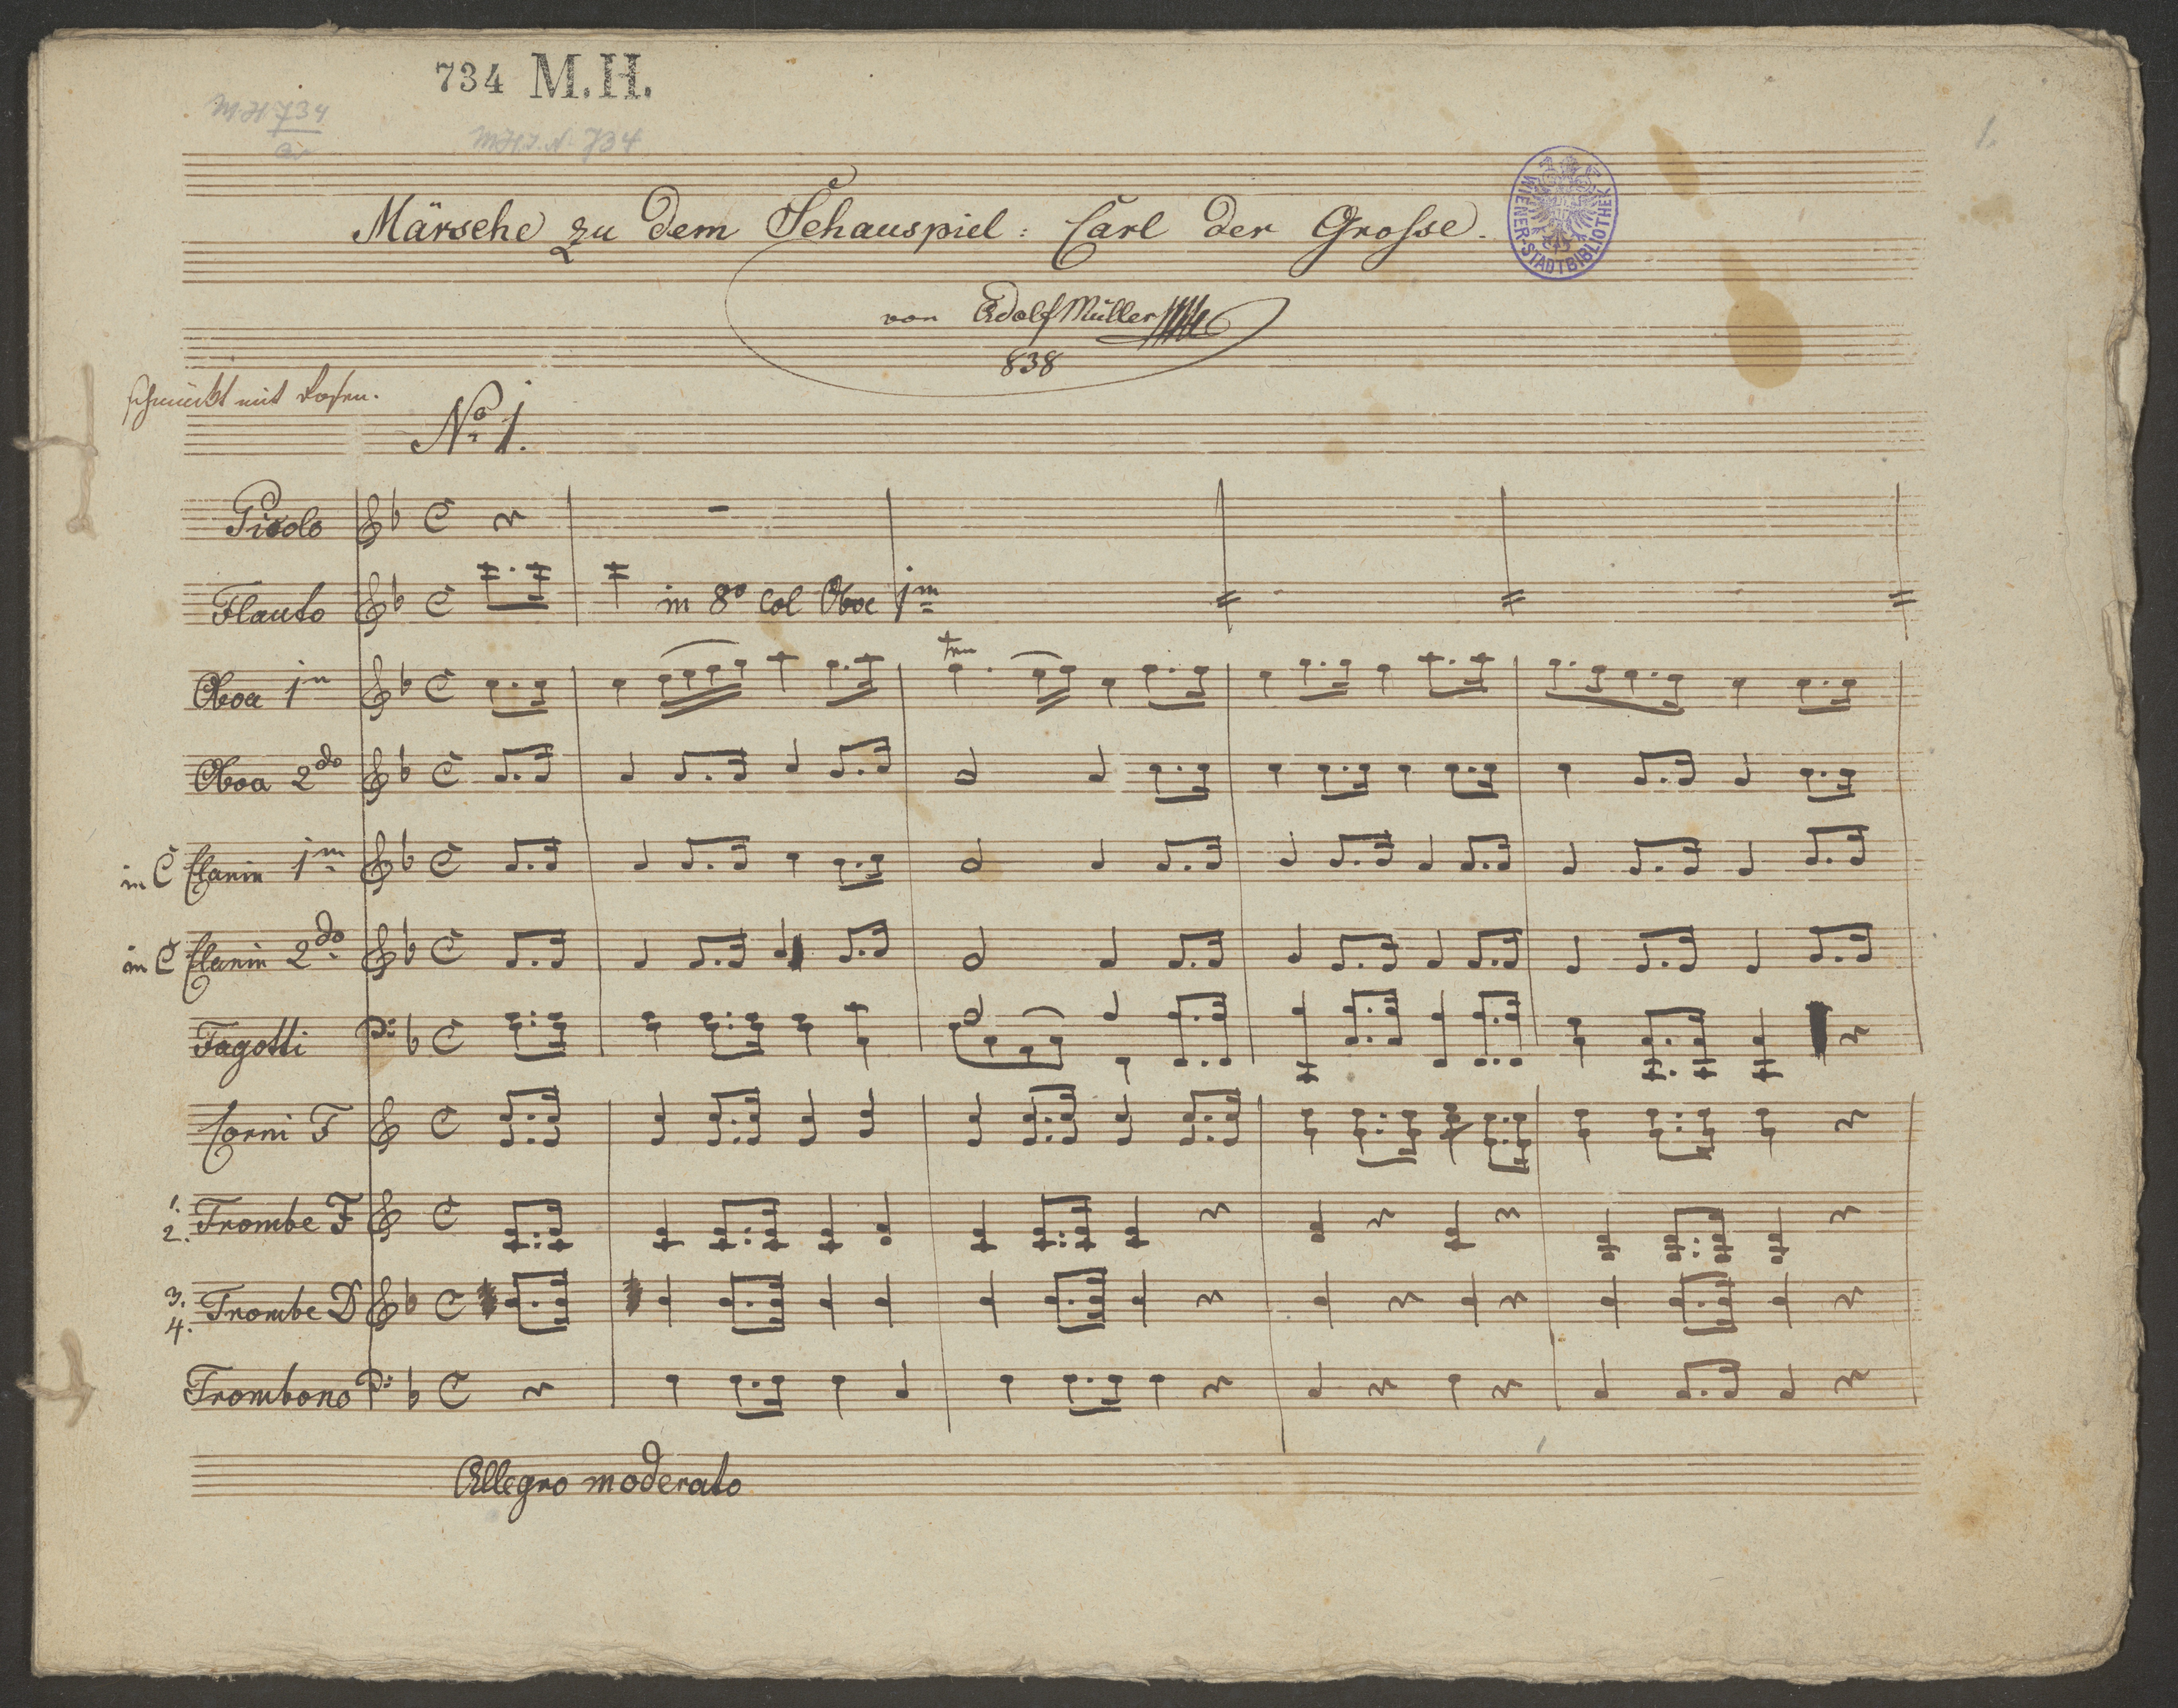 734 M.H.
M.H. 734
M.H.I.N. 734
1.
Märsche zu dem Schauspiel: Carl der Grosse.
WIENER-STADTBIBLIOTHEK
von Adolf Müller
838
schmückt mit Rosen.
No 1.
Picolo
Flauto in 8o col Oboe 1m
Oboa 1m
tr
Oboa 2do
in C Clarin 1m
in C Clarin 2do
Fagotti
Corni F
1. 2. Trombe F
3. 4. Trombe D
Trombono
Allegro moderato